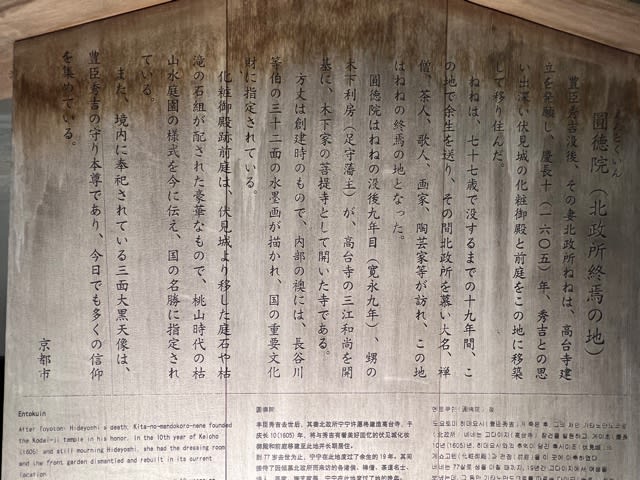 えんとくいん
圓徳院（北政所終焉の地）
豊臣秀吉没後、その妻北政所ねねは、高台寺建
立を発願し、慶長十（一六〇五）年、秀吉との思
い出深い伏見城の化粧御殿と前庭をこの地に移築
して移り住んだ。
ねねは、七十七歳で没するまでの十九年間、こ
の地で余生を送り、その間北政所を慕い大名、禅
僧、茶人、歌人、画家、陶芸家等が訪れ、この地
はねねの終焉の地となった。
圓徳院はねねの没後九年目（寛永九年）、甥の
木下利房（足守藩主）が、高台寺の三江和尚を開
基に、木下家の菩提寺として開いた寺である。
方丈は創建時のもので、内部の襖には、長谷川
等伯の三十二面の水墨画が描かれ、国の重要文化
財に指定されている。
化粧御殿跡前庭は、伏見城より移した庭石や枯
滝の石組が配された豪華なもので、桃山時代の枯
山水庭園の様式を今に伝え、国の名勝に指定され
ている。
また、境内に奉祀されている三面大黒天像は、
豊臣秀吉の守り本尊であり、今日でも多くの信仰
を集めている。
京都市
Entokuin
After Toyotomi Hideyoshi's death, Kita-no-mandokoro-nene founded
the Kodai-ji temple in his honor. In the 10th year of Keicho
(1605) and still mourning Hideyoshi, she had the dressing room
and the front garden dismantled and rebuilt in its current
location.
圆德院
丰臣秀吉去世后，其妻北政所宁宁许愿将建造高台寺，于
庆长10(1605)年，将与秀吉有着美好回忆的伏见城化妆
御殿和前庭移建至此地并长期居住。
到77岁去世为止，宁宁在此地度过了余生的19年。